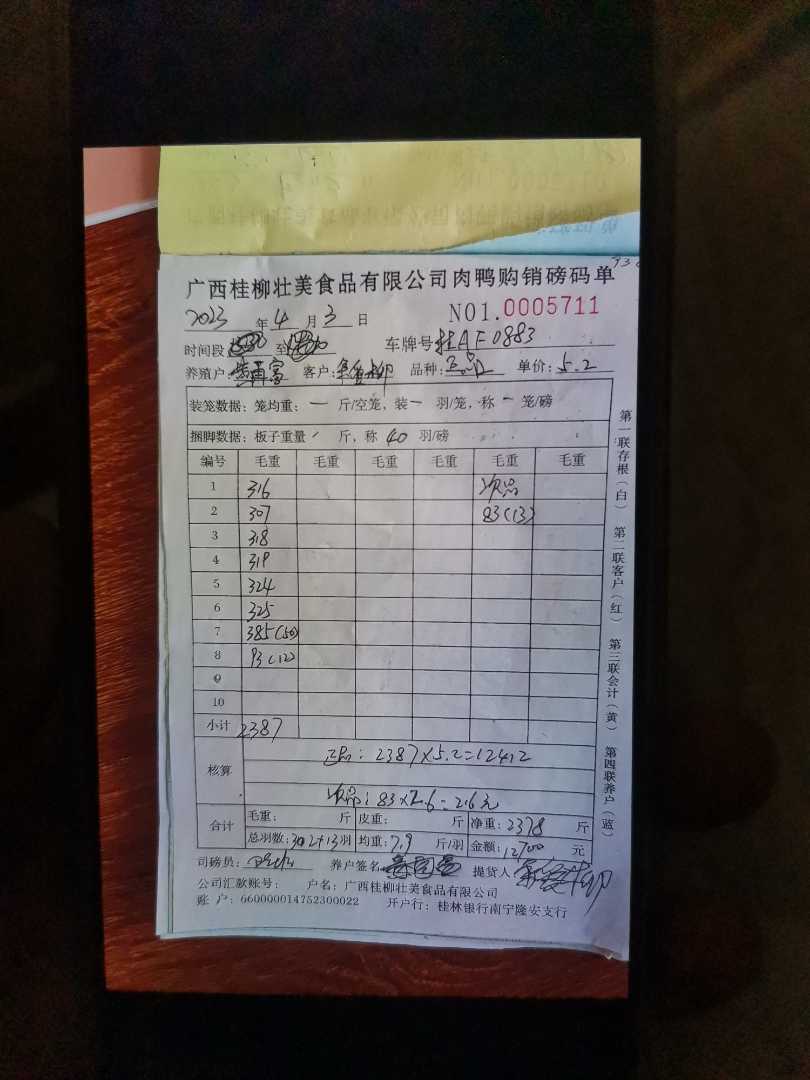 广西桂柳壮美食品有限公司肉鸭购销磅码单
2023 年 4 月 3 日 NO1.0005711
时间段 至 车牌号 桂AF0883
养殖户: 客户: 品种: 单价: 5.2
装笼数据: 笼均重: 一 斤/空笼, 装 一 羽/笼, 称 一 笼/磅
捆脚数据: 板子重量 / 斤, 称 40 羽/磅
编号 毛重 毛重 毛重 毛重 毛重 毛重
1 316 次品
2 307 83(13)
3 318
4 319
5 324
6 325
7 385(50)
8 93(12)
9
10
小计 2387
核算 正品: 2387×5.2=12412
次品: 83×2.6=216元
合计 毛重: 斤 皮重: 斤 净重: 2378 斤
总羽数: 302+13 羽 均重: 7.9 斤/羽 金额: 12700 元
司磅员: 养户签名 提货人
公司汇款账号: 户名: 广西桂柳壮美食品有限公司
账 户: 660000014752300022 开户行: 桂林银行南宁隆安支行
第一联存根(白) 第二联客户(红) 第三联会计(黄) 第四联养户(蓝)